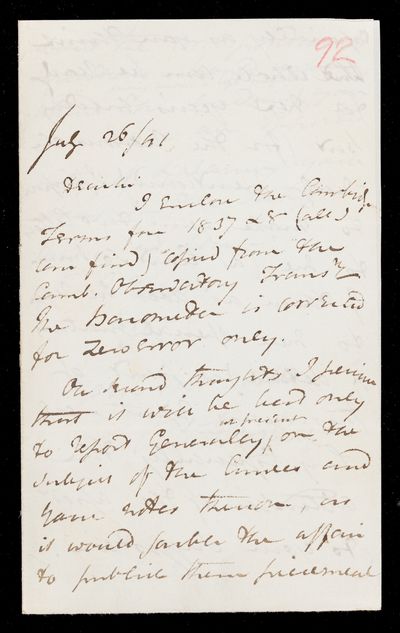 92
July 26/41
Dear Sir
I Enclose the Cambidge
Terms for 1837 & 8 (all I
can find) Copied from the
Camb. Observatory Transns
The barometer is corrected
for Zero Error only.
On second thoughts I perceive
that it will be best only
to report Generally, at present on the
subject of the Curves and
your notes thereon, as
it would the affair
to publish them piecemeal